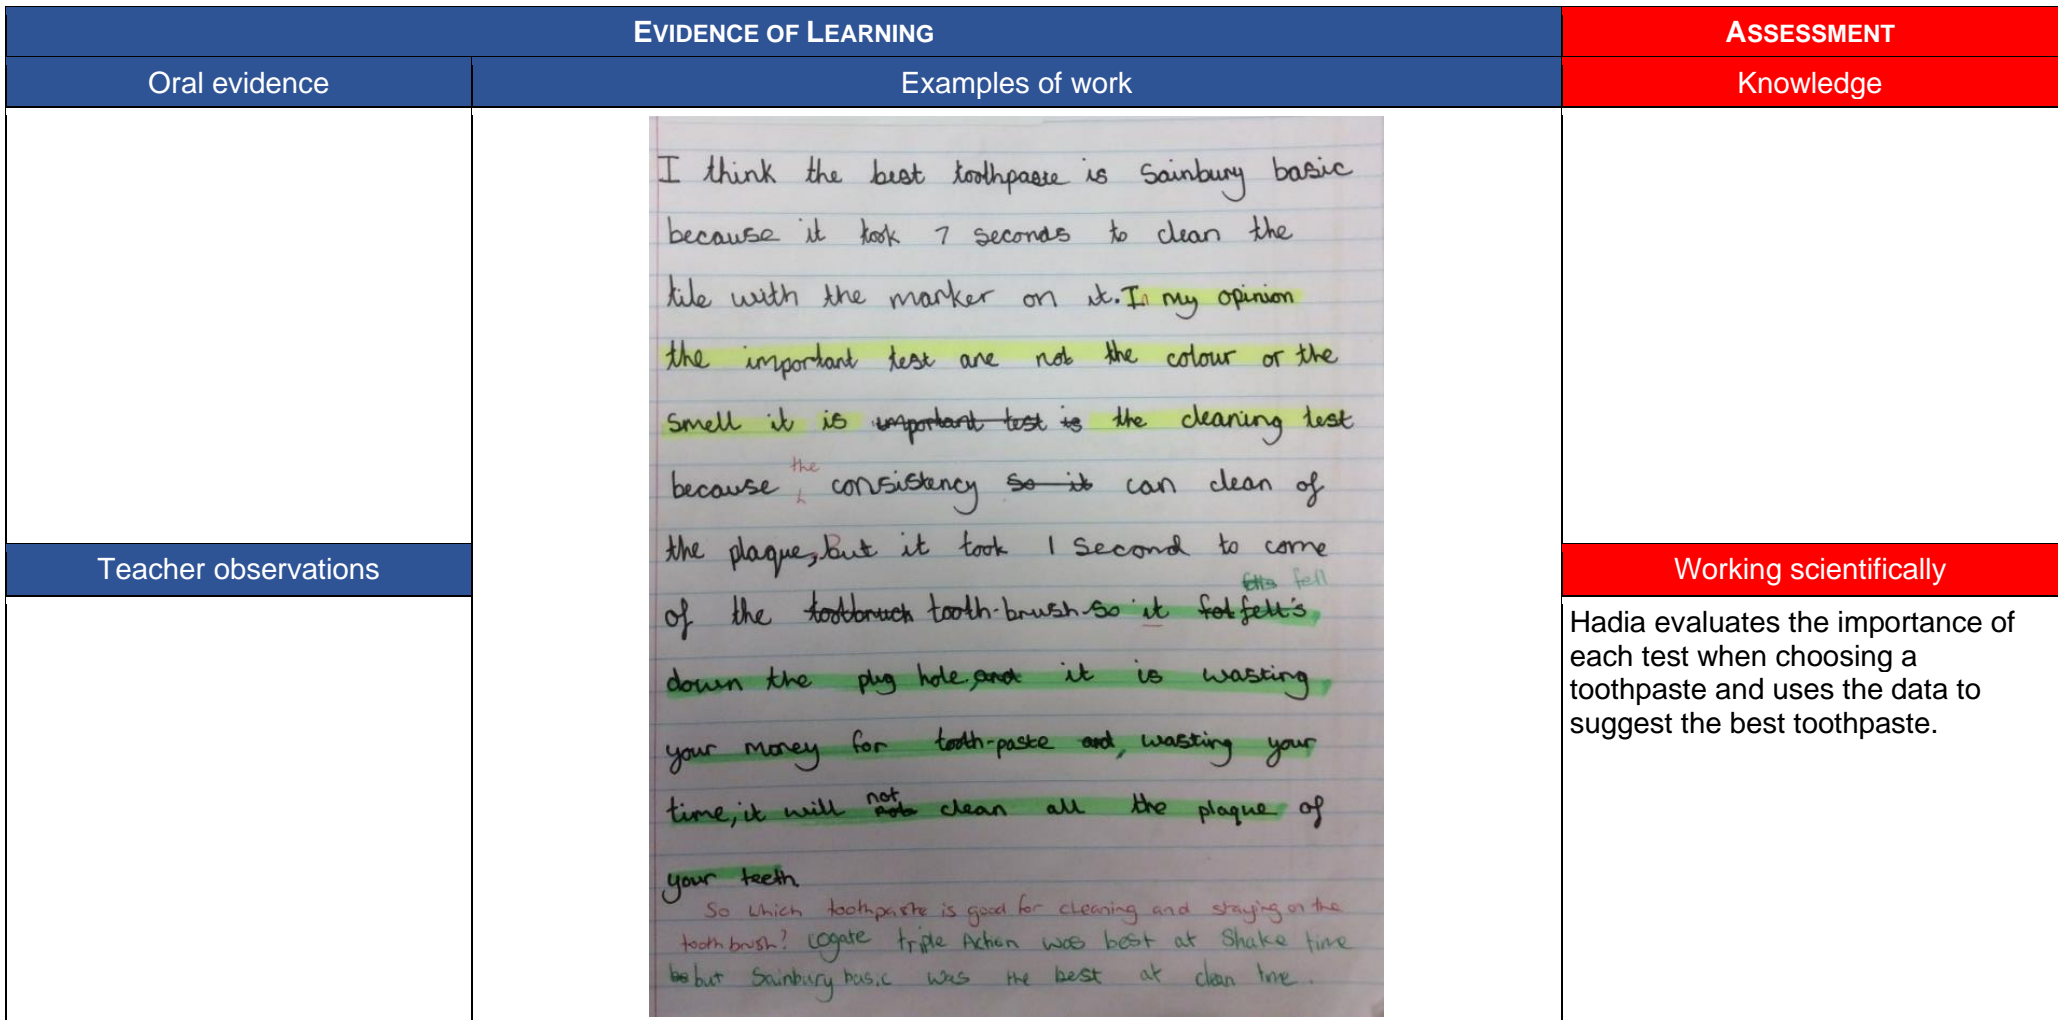 EVIDENCE OF LEARNING
ASSESSMENT
Oral evidence
Examples of work
Knowledge
I think the best toothpaste is Sainbury basic
because it took 7 seconds to clean the
tile with the marker on it. In my opinion
the important test are not the colour or the
smell it is important test is the cleaning test
because the consistency so it can clean of
the plaque, but it took 1 second to come
fell
of the tooth-brush so it fell's
down the plug hole, and it is wasting
your money for tooth-paste and, wasting your
time, it will not clean all the plaque of
your teeth.
So which toothpaste is good for cleaning and staying on the
toothbrush? Cogate triple Action was best at Shake time
but Sainbury basic was the best at clean time.
Teacher observations
Working scientifically
Hadia evaluates the importance of
each test when choosing a
toothpaste and uses the data to
suggest the best toothpaste.